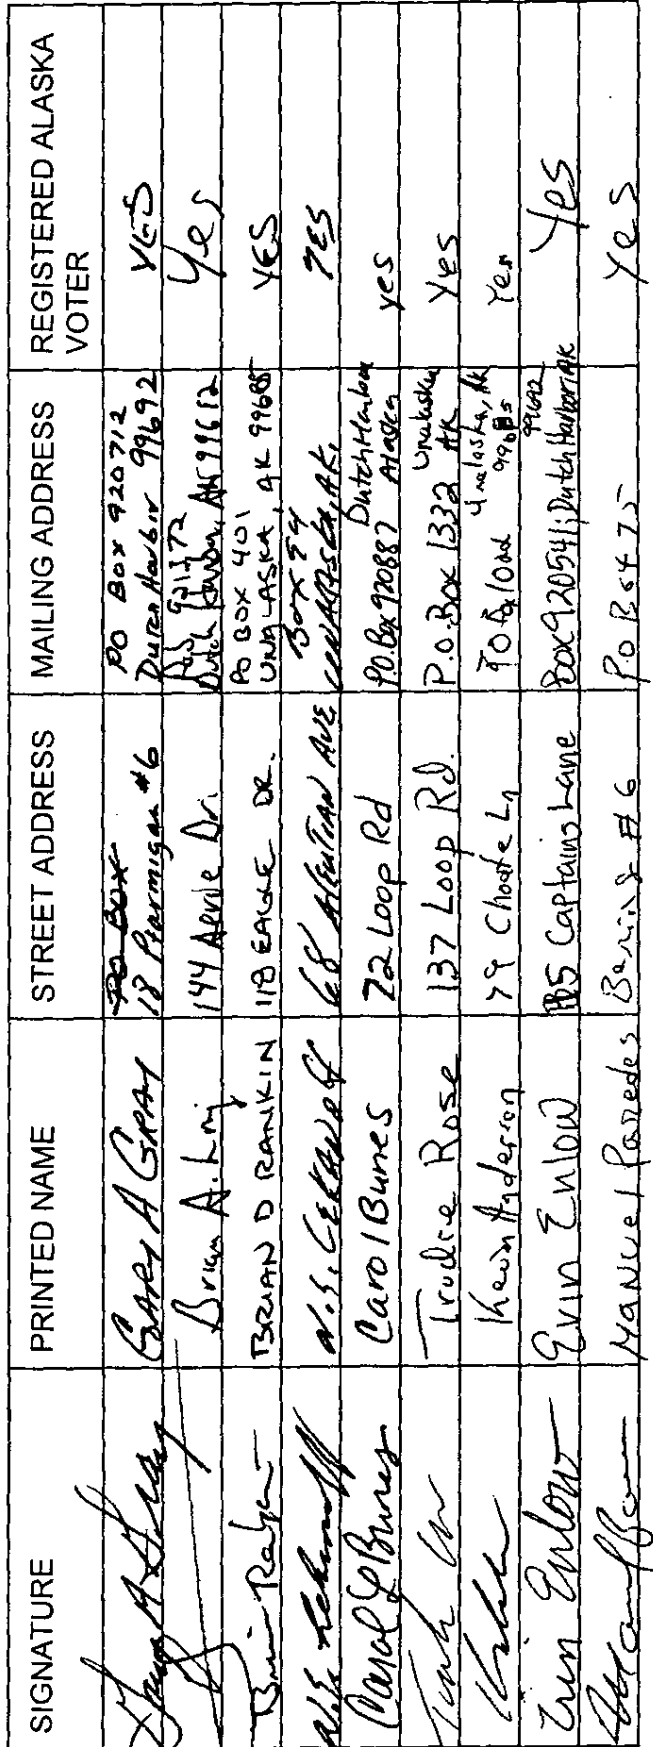 SIGNATURE PRINTED NAME STREET ADDRESS MAILING ADDRESS REGISTERED ALASKA VOTER
GARY A GRAY PO BOX 18 Ptarmigan #6 PO BOX 920712 Dutch Harbor 99692 YES
Brian A. 144 Aerie Dr. Dutch Harbor, Yes
BRIAN D RANKIN 118 EAGLE DR. PO BOX 401 UNALASKA, AK 99685 YES
N.S. 68 ALEUTIAN AVE BOX 54 UNALASKA, AK. YES
Carol Burnes 72 Loop Rd P.O. Box 920887 Dutch Harbor Alaska yes
Trudie Rose 137 Loop Rd. P.O. Box 1332 Unalaska AK Yes
Kevin Anderson 79 Choate Ln Unalaska, AK 99685 Yes
Erin Enlow Erin Enlow Captains Lane Box 920541; Dutch Harbor AK 99692 Yes
Manuel Paredes Bering #6 P.O B 475 Yes